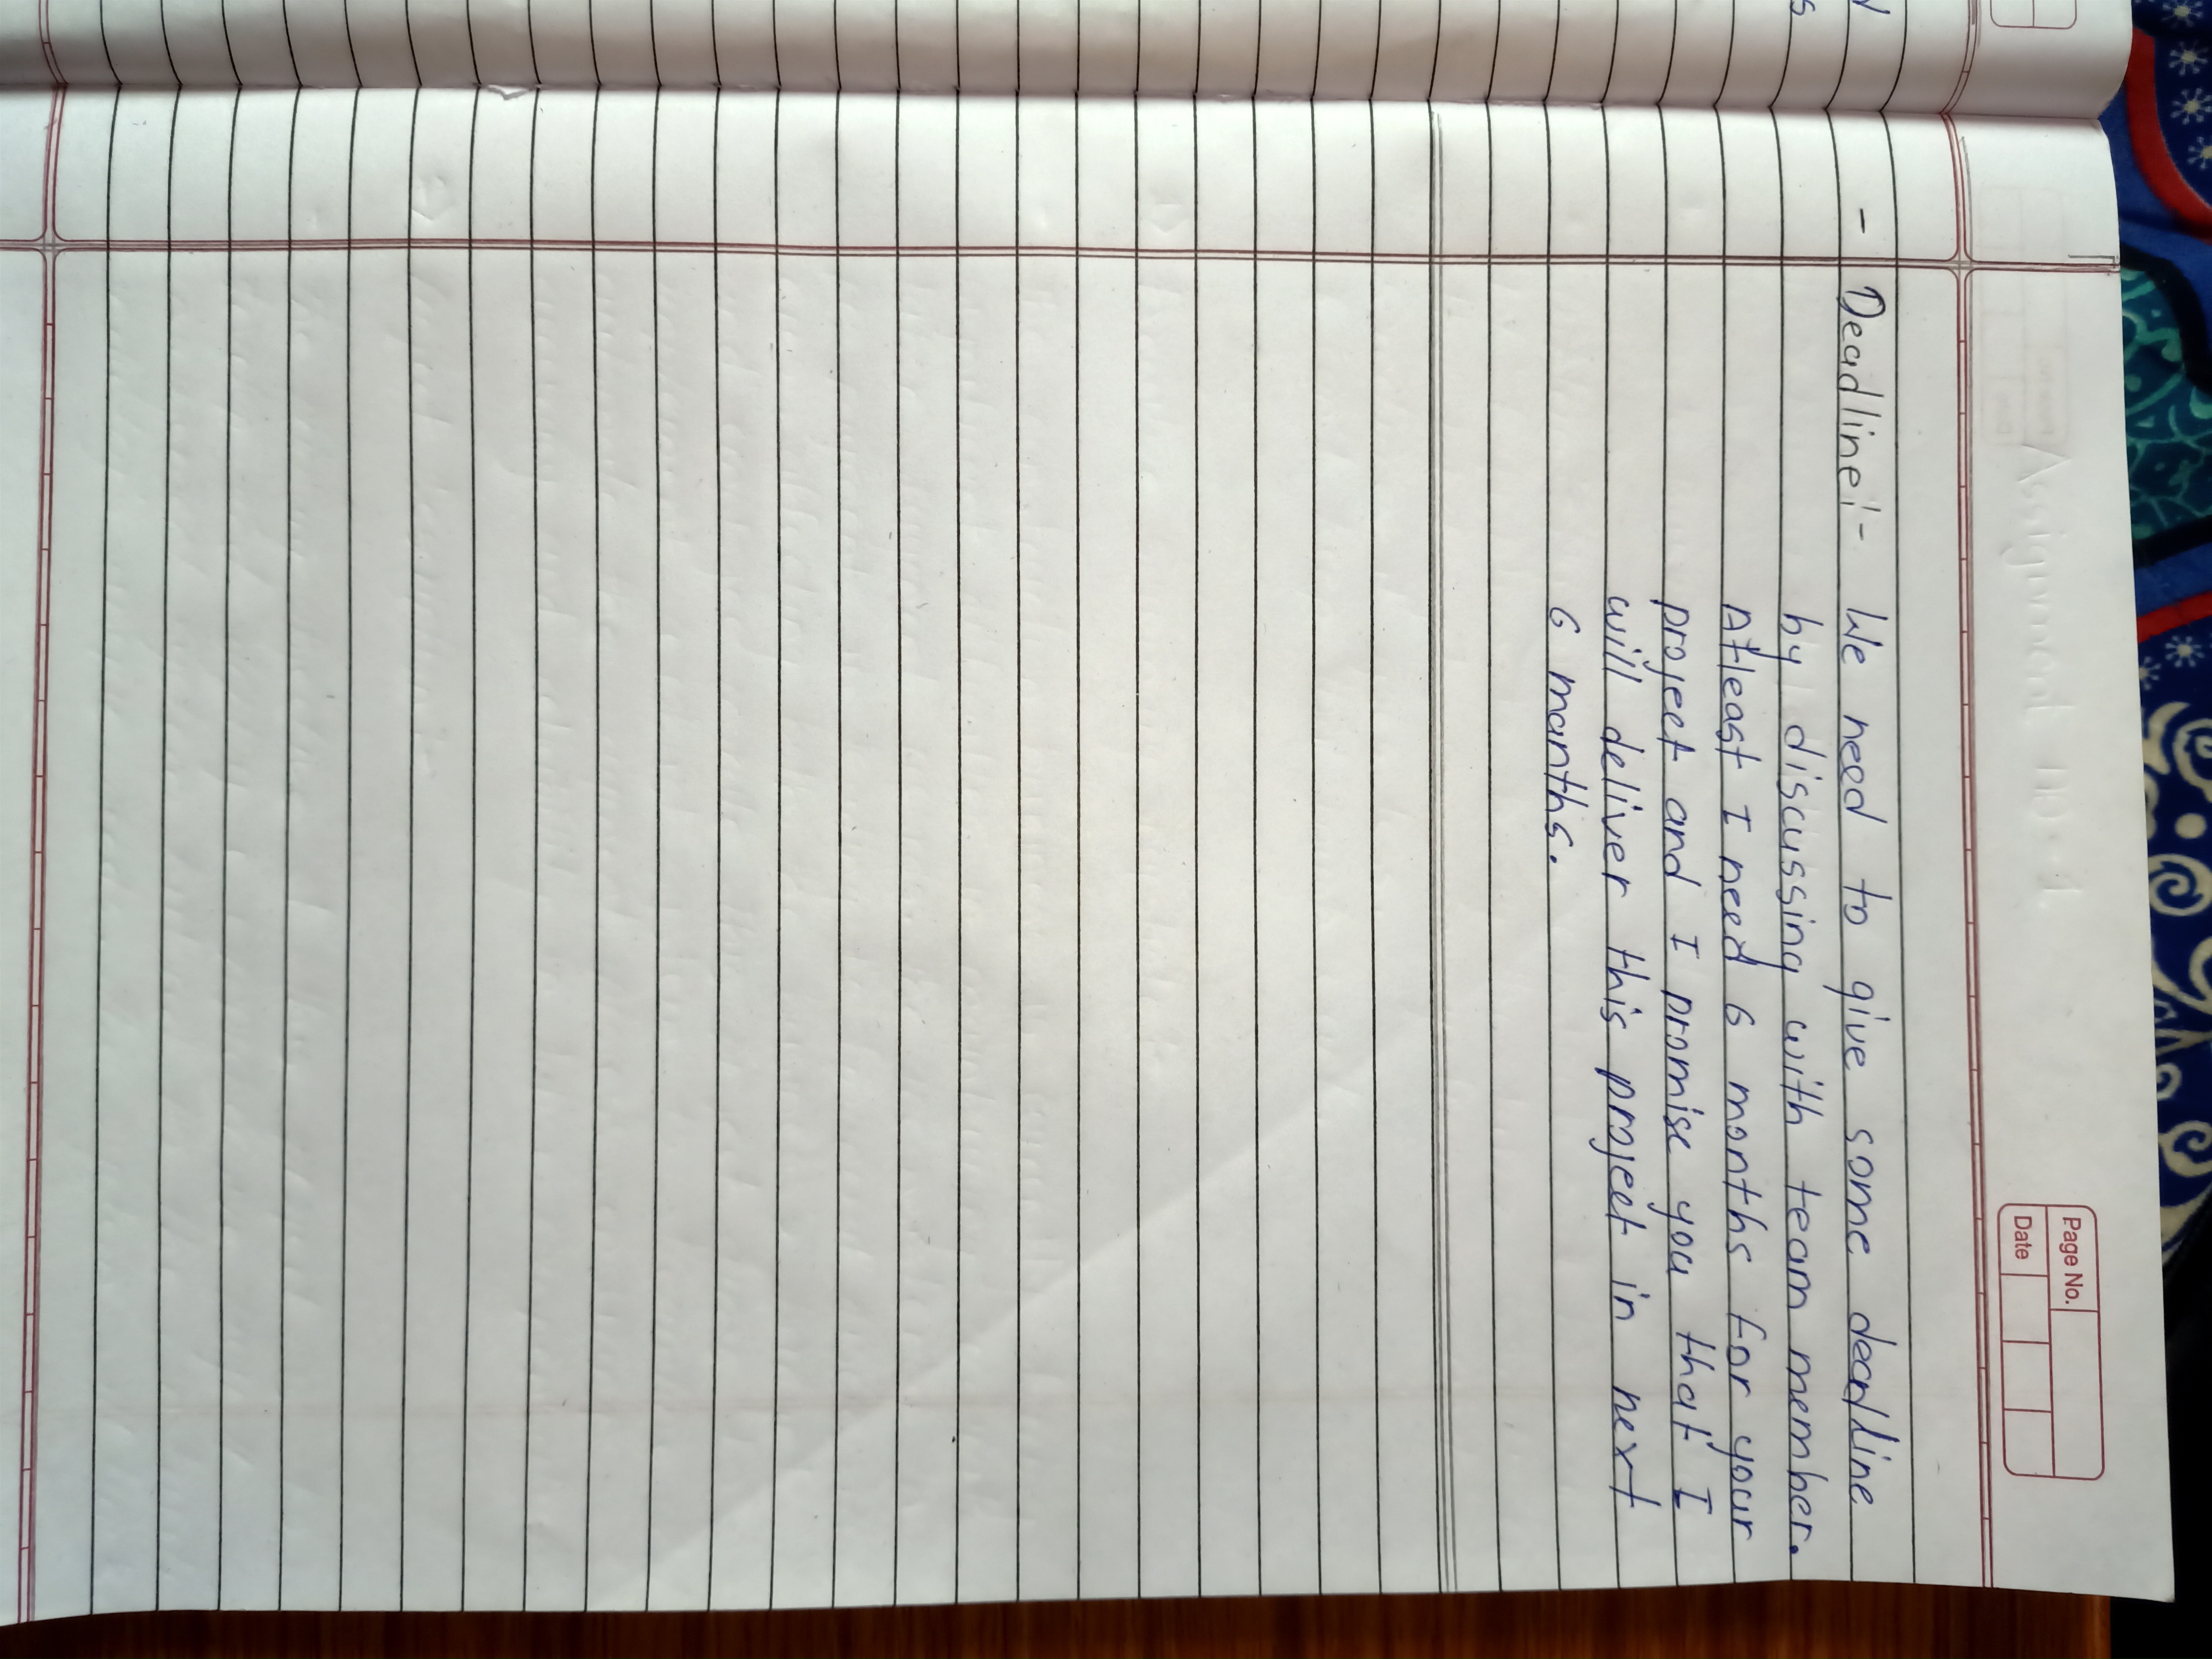 Assignment no-1.
Page No.
Date
- Deadline:- We need to give some deadline
by discussing with team member.
Atleast I need 6 months for your
project and I promise you that I
will deliver this project in next
6 manths.